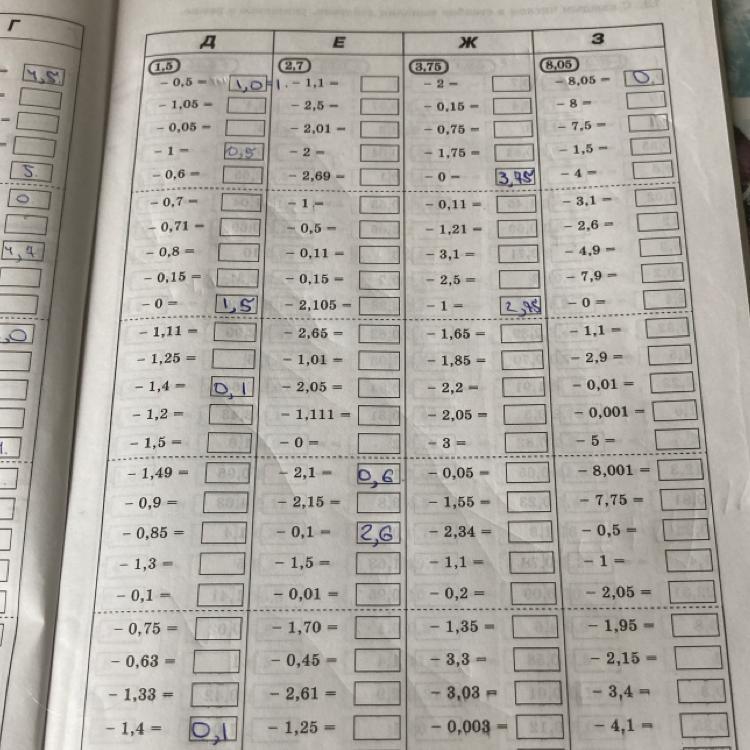 Г Д Е Ж З
1,5 2,7 3,75 8,05
4,5. − 0,5 = 1,0=1. − 1,1 = − 2 = − 8,05 = 0.
= − 1,05 = − 2,5 = − 0,15 = − 8 =
= − 0,05 = − 2,01 = − 0,75 = − 7,5 =
= − 1 = 0,5 − 2 = − 1,75 = − 1,5 =
5. − 0,6 = − 2,69 = − 0 = 3,75 − 4 =
0 − 0,7 = − 1 = − 0,11 = − 3,1 =
− 0,71 = − 0,5 = − 1,21 = − 2,6 =
− 0,8 = − 0,11 = − 3,1 = − 4,9 =
− 0,15 = − 0,15 = − 2,5 = − 7,9 =
− 0 = 1,5 − 2,105 = − 1 = 2,75 − 0 =
,0 − 1,11 = − 2,65 = − 1,65 = − 1,1 =
− 1,25 = − 1,01 = − 1,85 = − 2,9 =
− 1,4 = 0,1 − 2,05 = − 2,2 = − 0,01 =
− 1,2 = − 1,111 = − 2,05 = − 0,001 =
− 1,5 = − 0 = − 3 = − 5 =
− 1,49 = − 2,1 = 0,6 − 0,05 = − 8,001 =
− 0,9 = − 2,15 = − 1,55 = − 7,75 =
− 0,85 = − 0,1 = 2,6 − 2,34 = − 0,5 =
− 1,3 = − 1,5 = − 1,1 = − 1 =
− 0,1 = − 0,01 = − 0,2 = − 2,05 =
− 0,75 = − 1,70 = − 1,35 = − 1,95 =
− 0,63 = − 0,45 = − 3,3 = − 2,15 =
− 1,33 = − 2,61 = − 3,03 = − 3,4 =
− 1,4 = 0,1 − 1,25 = − 0,003 = − 4,1 =